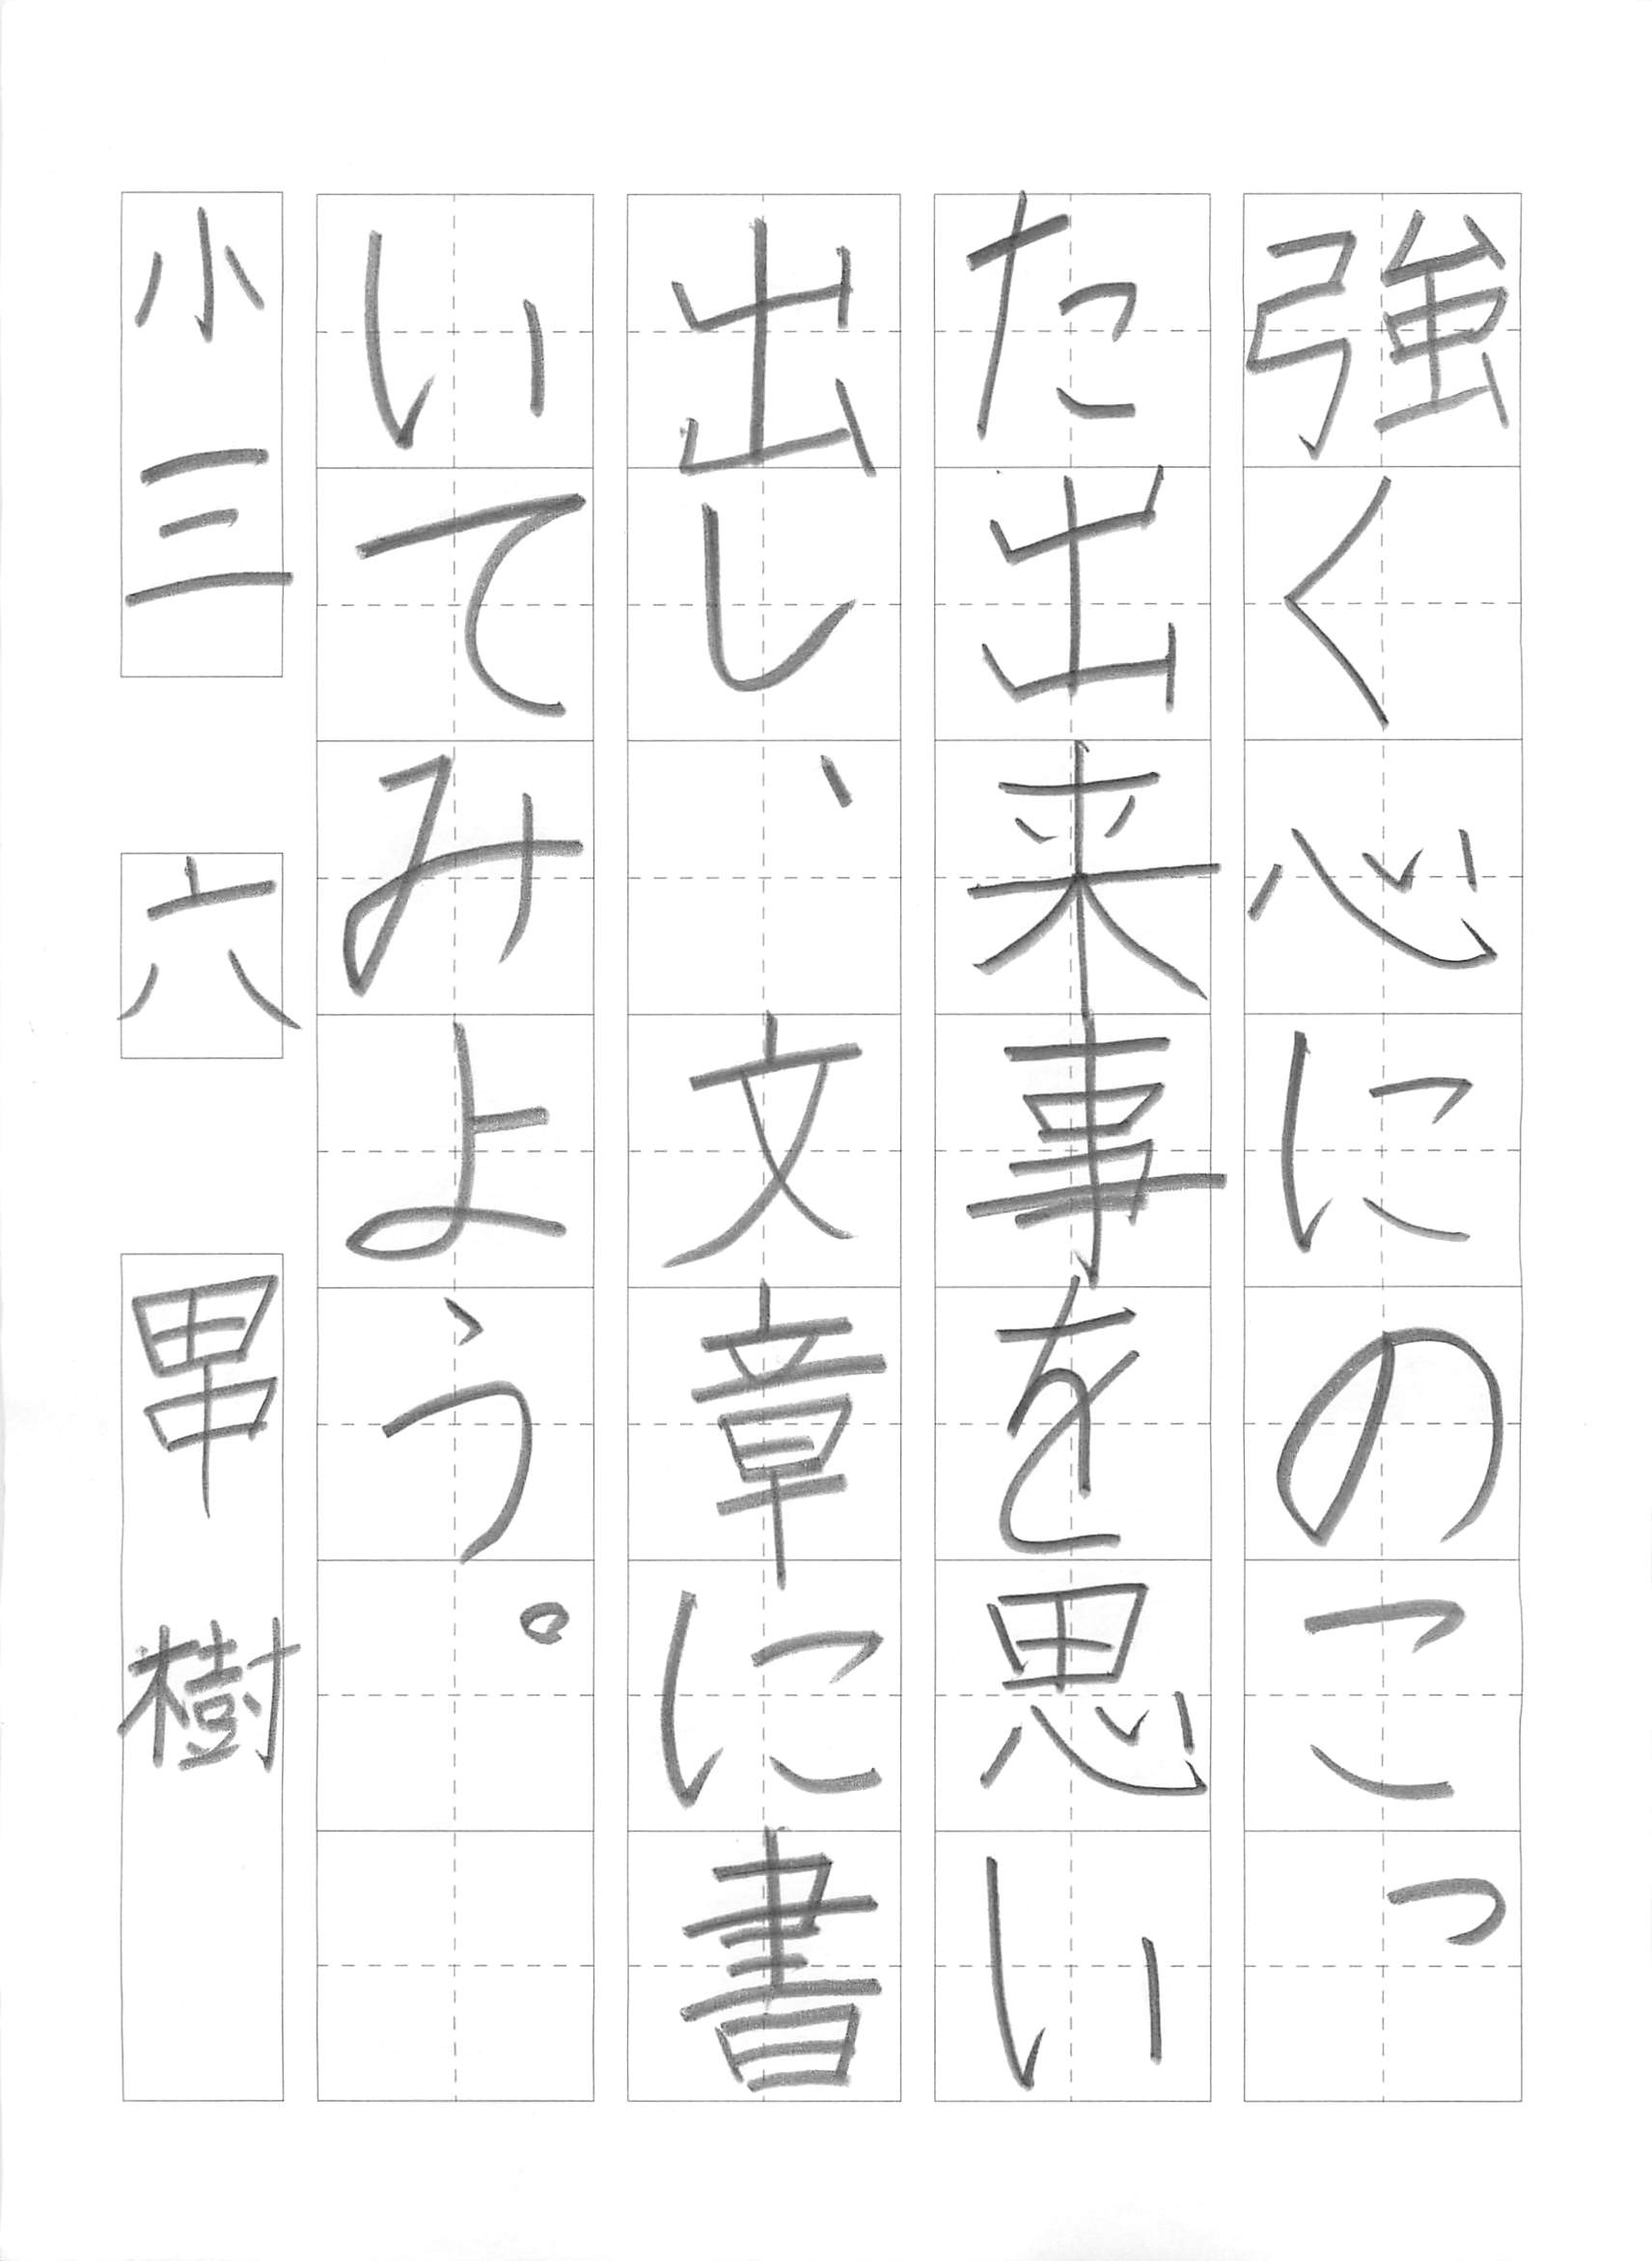 強く心にのこっ
た出来事を思い
出し、文章に書
いてみよう。
小三 六 樹